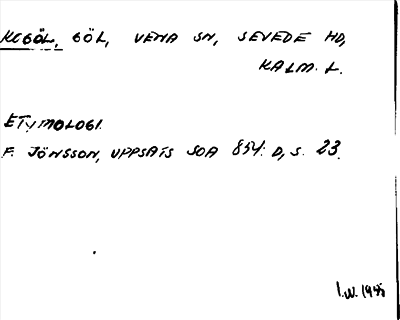 KLOBÖL, GÖL, VENA SN, SEVEDE HD,
KALM. L.
ETYMOLOGI.
F. JÖNSSON, UPPSATS SOA 854: D, S. 23.
I.W. 1945